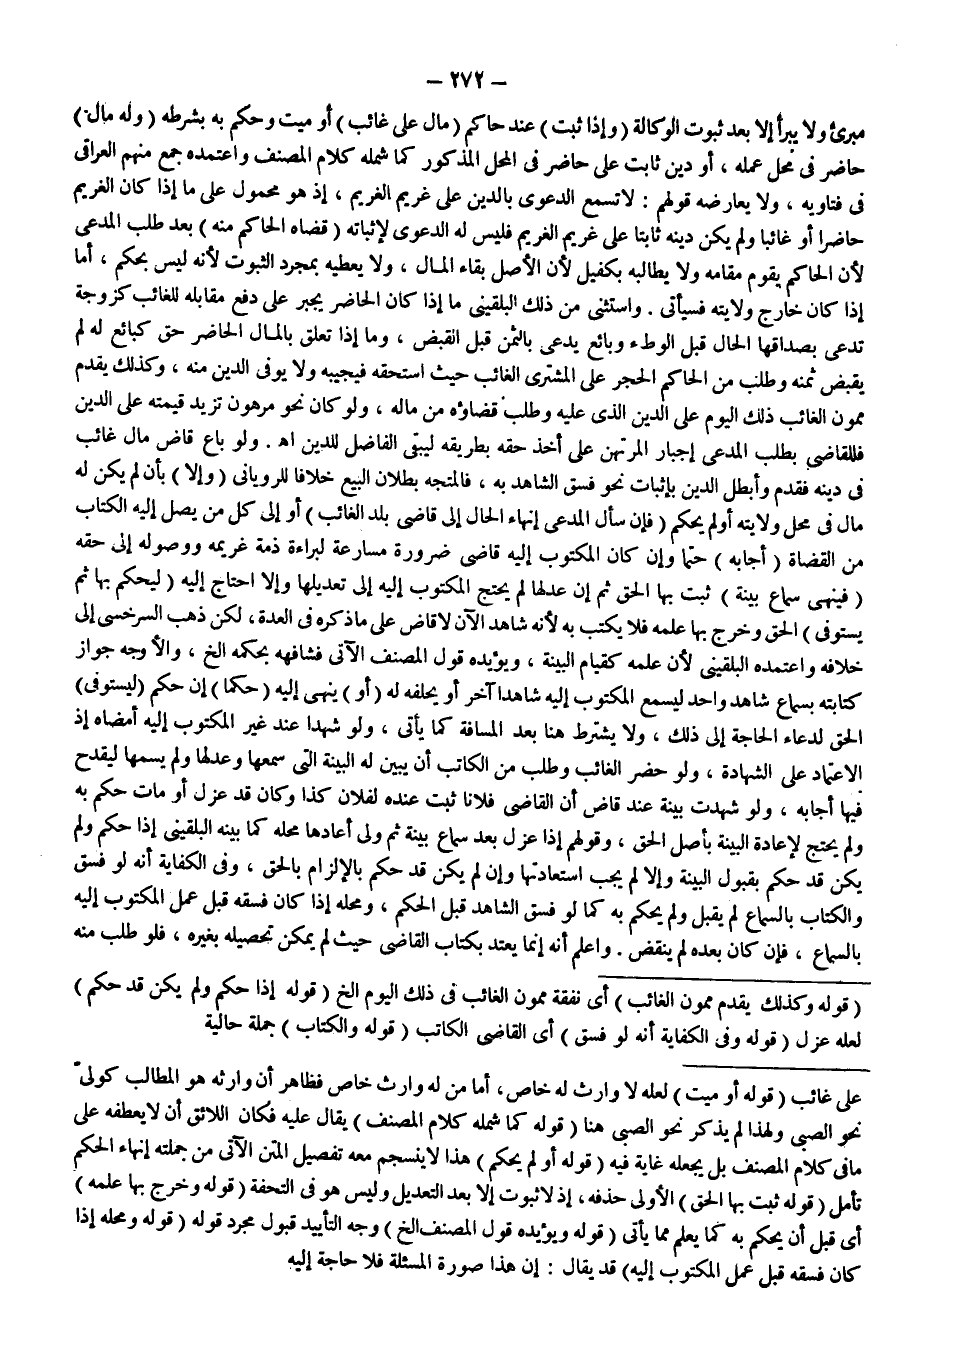 - ٢٧٢ -
مبرئ ولا يبرأ إلا بعد ثبوت الوكالة ( وإذا ثبت ) عند حاكم ( مال على غائب ) أو ميت وحكم به بشرطه ( وله مال )
حاضر فى محل عمله ، أو دين ثابت على حاضر فى المحل المذكور كما شمله كلام المصنف واعتمده جمع منهم العراقى
فى فتاويه ، ولا يعارضه قولهم : لاتسمع الدعوى بالدين على غريم الغريم ، إذ هو محمول على ما إذا كان الغريم
حاضرا أو غائبا ولم يكن دينه ثابتا على غريم الغريم فليس له الدعوى لإثباته ( قضاه الحاكم منه ) بعد طلب المدعى
لأن الحاكم يقوم مقامه ولا يطالبه بكفيل لأن الأصل بقاء المال ، ولا يعطيه بمجرد الثبوت لأنه ليس بحكم ، أما
إذا كان خارج ولايته فسيأتى . واستثنى من ذلك البلقينى ما إذا كان الحاضر يجبر على دفع مقابله للغائب كزوجة
تدعى بصداقها الحال قبل الوطء وبائع يدعى بالثمن قبل القبض ، وما إذا تعلق بالمال الحاضر حق كبائع له لم
يقبض ثمنه وطلب من الحاكم الحجر على المشترى الغائب حيث استحقه فيجيبه ولا يوفى الدين منه ، وكذلك يقدم
ممون الغائب ذلك اليوم على الدين الذى عليه وطلب قضاؤه من ماله ، ولو كان نحو مرهون تزيد قيمته على الدين
فللقاضى بطلب المدعى إجبار المرتهن على أخذ حقه بطريقه ليبقى الفاضل للدين اه . ولو باع قاض مال غائب
فى دينه فقدم وأبطل الدين بإثبات نحو فسق الشاهد به ، فالمتجه بطلان البيع خلافا للرويانى ( وإلا ) بأن لم يكن له
مال فى محل ولايته أولم يحكم ( فإن سأل المدعى إنهاء الحال إلى قاضى بلد الغائب ) أو إلى كل من يصل إليه الكتاب
من القضاة ( أجابه ) حتما وإن كان المكتوب إليه قاضى ضرورة مسارعة لبراءة ذمة غريمه ووصوله إلى حقه
( فينهى سماع بينة ) ثبت بها الحق ثم إن عدلها لم يحتج المكتوب إليه إلى تعديلها وإلا احتاج إليه ( ليحكم بها ثم
يستوفى ) الحق وخرج بها علمه فلا يكتب به لأنه شاهد الآن لاقاض على ماذكره فى العدة ، لكن ذهب السرخسى إلى
خلافه واعتمده البلقينى لأن علمه كقيام البينة ، ويؤيده قول المصنف الآتى فشافهه بحكمه الخ ، والأوجه جواز
كتابته بسماع شاهد واحد ليسمع المكتوب إليه شاهدا آخر أو يحلفه له ( أو ) ينهى إليه ( حكما ) إن حكم ( ليستوفى )
الحق لدعاء الحاجة إلى ذلك ، ولا يشترط هنا بعد المسافة كما يأتى ، ولو شهدا عند غير المكتوب إليه أمضاه إذ
الاعتماد على الشهادة ، ولو حضر الغائب وطلب من الكاتب أن يبين له البينة التى سمعها وعدلها ولم يسمها ليقدح
فيها أجابه ، ولو شهدت بينة عند قاض أن القاضى فلانا ثبت عنده لفلان كذا وكان قد عزل أو مات حكم به
ولم يحتج لإعادة البينة بأصل الحق ، وقولهم إذا عزل بعد سماع بينة ثم ولى أعادها محله كما بينه البلقينى إذا حكم ولم
يكن قد حكم بقبول البينة وإلا لم يجب استعادتها وإن لم يكن قد حكم بالإلزام بالحق ، وفى الكفاية أنه لو فسق
والكتاب بالسماع لم يقبل ولم يحكم به كما لو فسق الشاهد قبل الحكم ، ومحله إذا كان فسقه قبل عمل المكتوب إليه
بالسماع ، فإن كان بعده لم ينقض . واعلم أنه إنما يعتد بكتاب القاضى حيث لم يمكن تحصيله بغيره ، فلو طلب منه
( قوله وكذلك يقدم ممون الغائب ) أى نفقة ممون الغائب فى ذلك اليوم الخ ( قوله إذا حكم ولم يكن قد حكم )
لعله عزل ( قوله وفى الكفاية أنه لو فسق ) أى القاضى الكاتب ( قوله والكتاب ) جملة حالية
على غائب ( قوله أو ميت ) لعله لا وارث له خاص ، أما من له وارث خاص فظاهر أن وارثه هو المطالب كولى
نحو الصبى ولهذا لم يذكر نحو الصبى هنا ( قوله كما شمله كلام المصنف ) يقال عليه فكان اللائق أن لايعطفه على
مافى كلام المصنف بل يجعله غاية فيه ( قوله أو لم يحكم ) هذا لاينسجم معه تفصيل المتن الآتى من جملته إنهاء الحكم
تأمل ( قوله ثبت بها الحق ) الأولى حذفه ، إذ لاثبوت إلا بعد التعديل وليس هو فى التحفة ( قوله وخرج بها علمه )
أى قبل أن يحكم به كما يعلم مما يأتى ( قوله ويؤيده قول المصنف الخ ) وجه التأييد قبول مجرد قوله ( قوله ومحله إذا
كان فسقه قبل عمل المكتوب إليه ) قد يقال : إن هذا صورة المسئلة فلا حاجة إليه